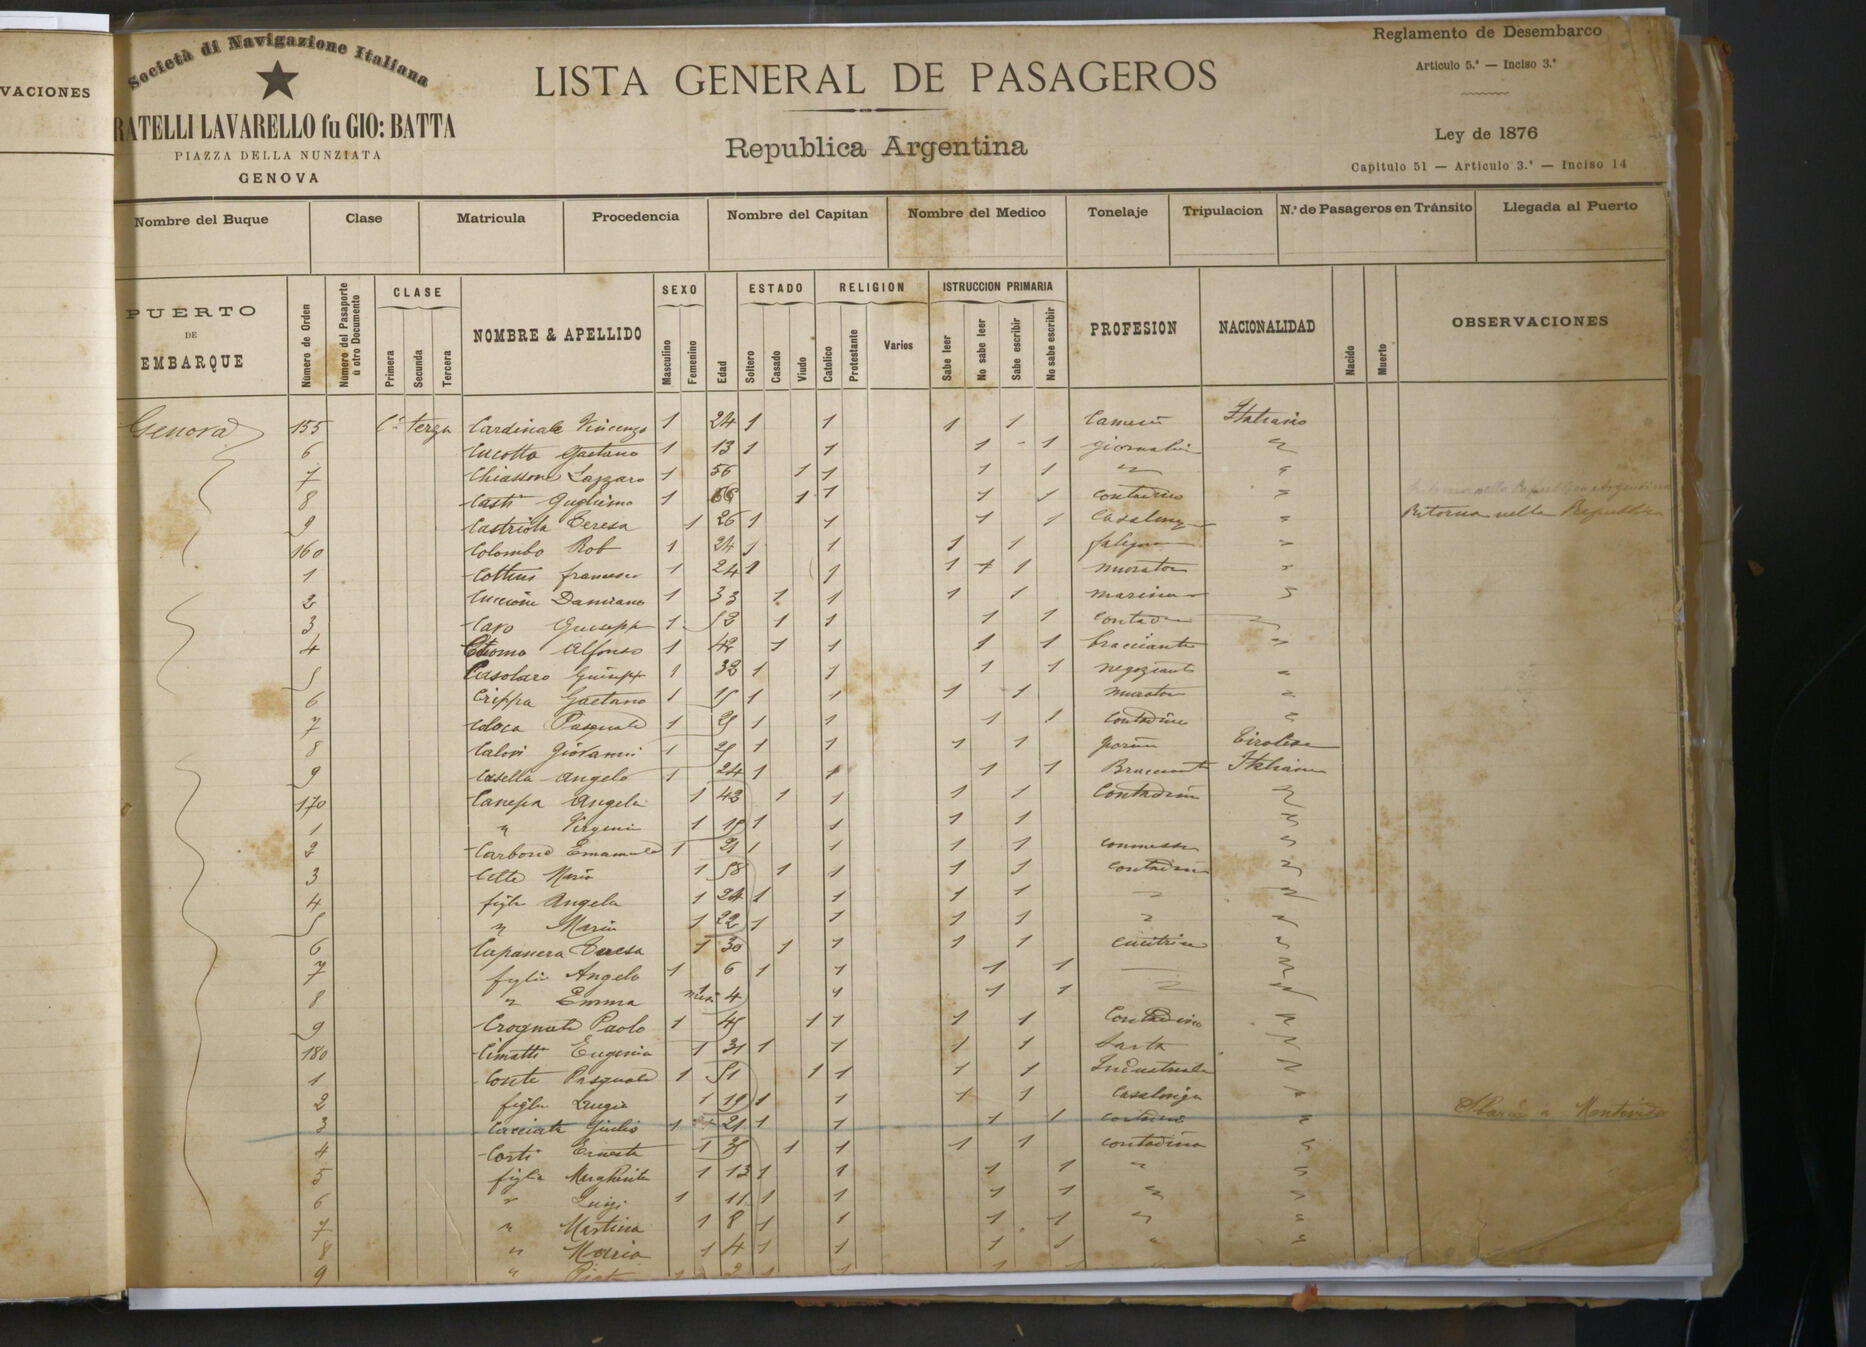 VACIONES
Società di Navigazione Italiana
RATELLI LAVARELLO fu GIO: BATTA
PIAZZA DELLA NUNZIATA
GENOVA
LISTA GENERAL DE PASAGEROS
Republica Argentina
Reglamento de Desembarco
Articulo 5.º — Inciso 3.º
Ley de 1876
Capitulo 51 — Articulo 3.º — Inciso 14
Nombre del Buque Clase Matricula Procedencia Nombre del Capitan Nombre del Medico Tonelaje Tripulacion N.º de Pasageros en Tránsito Llegada al Puerto
PUERTO DE EMBARQUE Número de Orden Número del Pasaporte ú otro Documento CLASE Primera Secunda Tercera NOMBRE & APELLIDO SEXO Masculino Femenino Edad ESTADO Soltero Casado Viudo RELIGION Catolico Protestante Varios ISTRUCCION PRIMARIA Sabe leer No sabe leer Sabe escribir No sabe escribir PROFESION NACIONALIDAD Nacido Muerto OBSERVACIONES
Genova 155 Cl. terza Cardinale Vincenzo 1 24 1 1 1 1 Italiano
6 Cucotta Gaetano 1 13 1 1 1 - 1 "
7 Chiassone Lazzaro 1 56 1 1 1 1 " "
8 Casti Guglielmo 1 1 1 1 1 contadino "
9 Castriota Teresa 1 26 1 1 1 1 Casalinga " Ritorna nella Republica
160 Colombo Rob 1 24 1 1 1 1 "
1 Francesco 1 24 1 1 1 1 muratore "
2 Damiano 1 33 1 1 1 1 "
3 Caro Giuseppe 1 53 1 1 1 1 "
4 Alfonso 1 42 1 1 1 1 bracciante "
5 Casolaro Giuseppe 1 32 1 1 1 1 negoziante "
6 Crippa Gaetano 1 1 1 1 1 muratore "
7 Coloca Pasquale 1 1 1 1 1 contadino "
8 Calovi Giovanni 1 1 1 1 1 Tirolese
9 Casella Angelo 1 24 1 1 1 1 Bracciante Italiano
170 Canepa Angela 1 43 1 1 1 1 Contadina "
1 " Virginia 1 1 1 1 1 "
2 Carbone Emanuele 1 21 1 1 1 1 "
3 Maria 1 58 1 1 1 1 contadina "
4 figlia Angela 1 24 1 1 1 1 " "
5 " Maria 1 22 1 1 1 1 " "
6 Capanera Teresa 1 30 1 1 1 1 cucitrice "
7 figlio Angelo 1 6 1 1 1 1 "
8 " Emma mesi 4 1 1 1 "
9 Paolo 1 45 1 1 1 1 Contadino "
180 Cimatti Eugenia 1 31 1 1 1 1 Sarta "
1 Conte Pasquale 1 51 1 1 1 1 Industriale "
2 figlia Luigia 1 19 1 1 1 1 Casalinga "
3 Cacciata Giulio 1 21 1 1 1 1 "
4 Corti Ernesta 1 1 1 1 1 contadina "
5 figlia Margherita 1 13 1 1 1 1 " "
6 " Luigi 1 11 1 1 1 1 " "
7 " Martina 1 8 1 1 1 1 " "
8 " Maria 1 4 1 1 1 1 " "
9 " 1 2 1 1 1 1